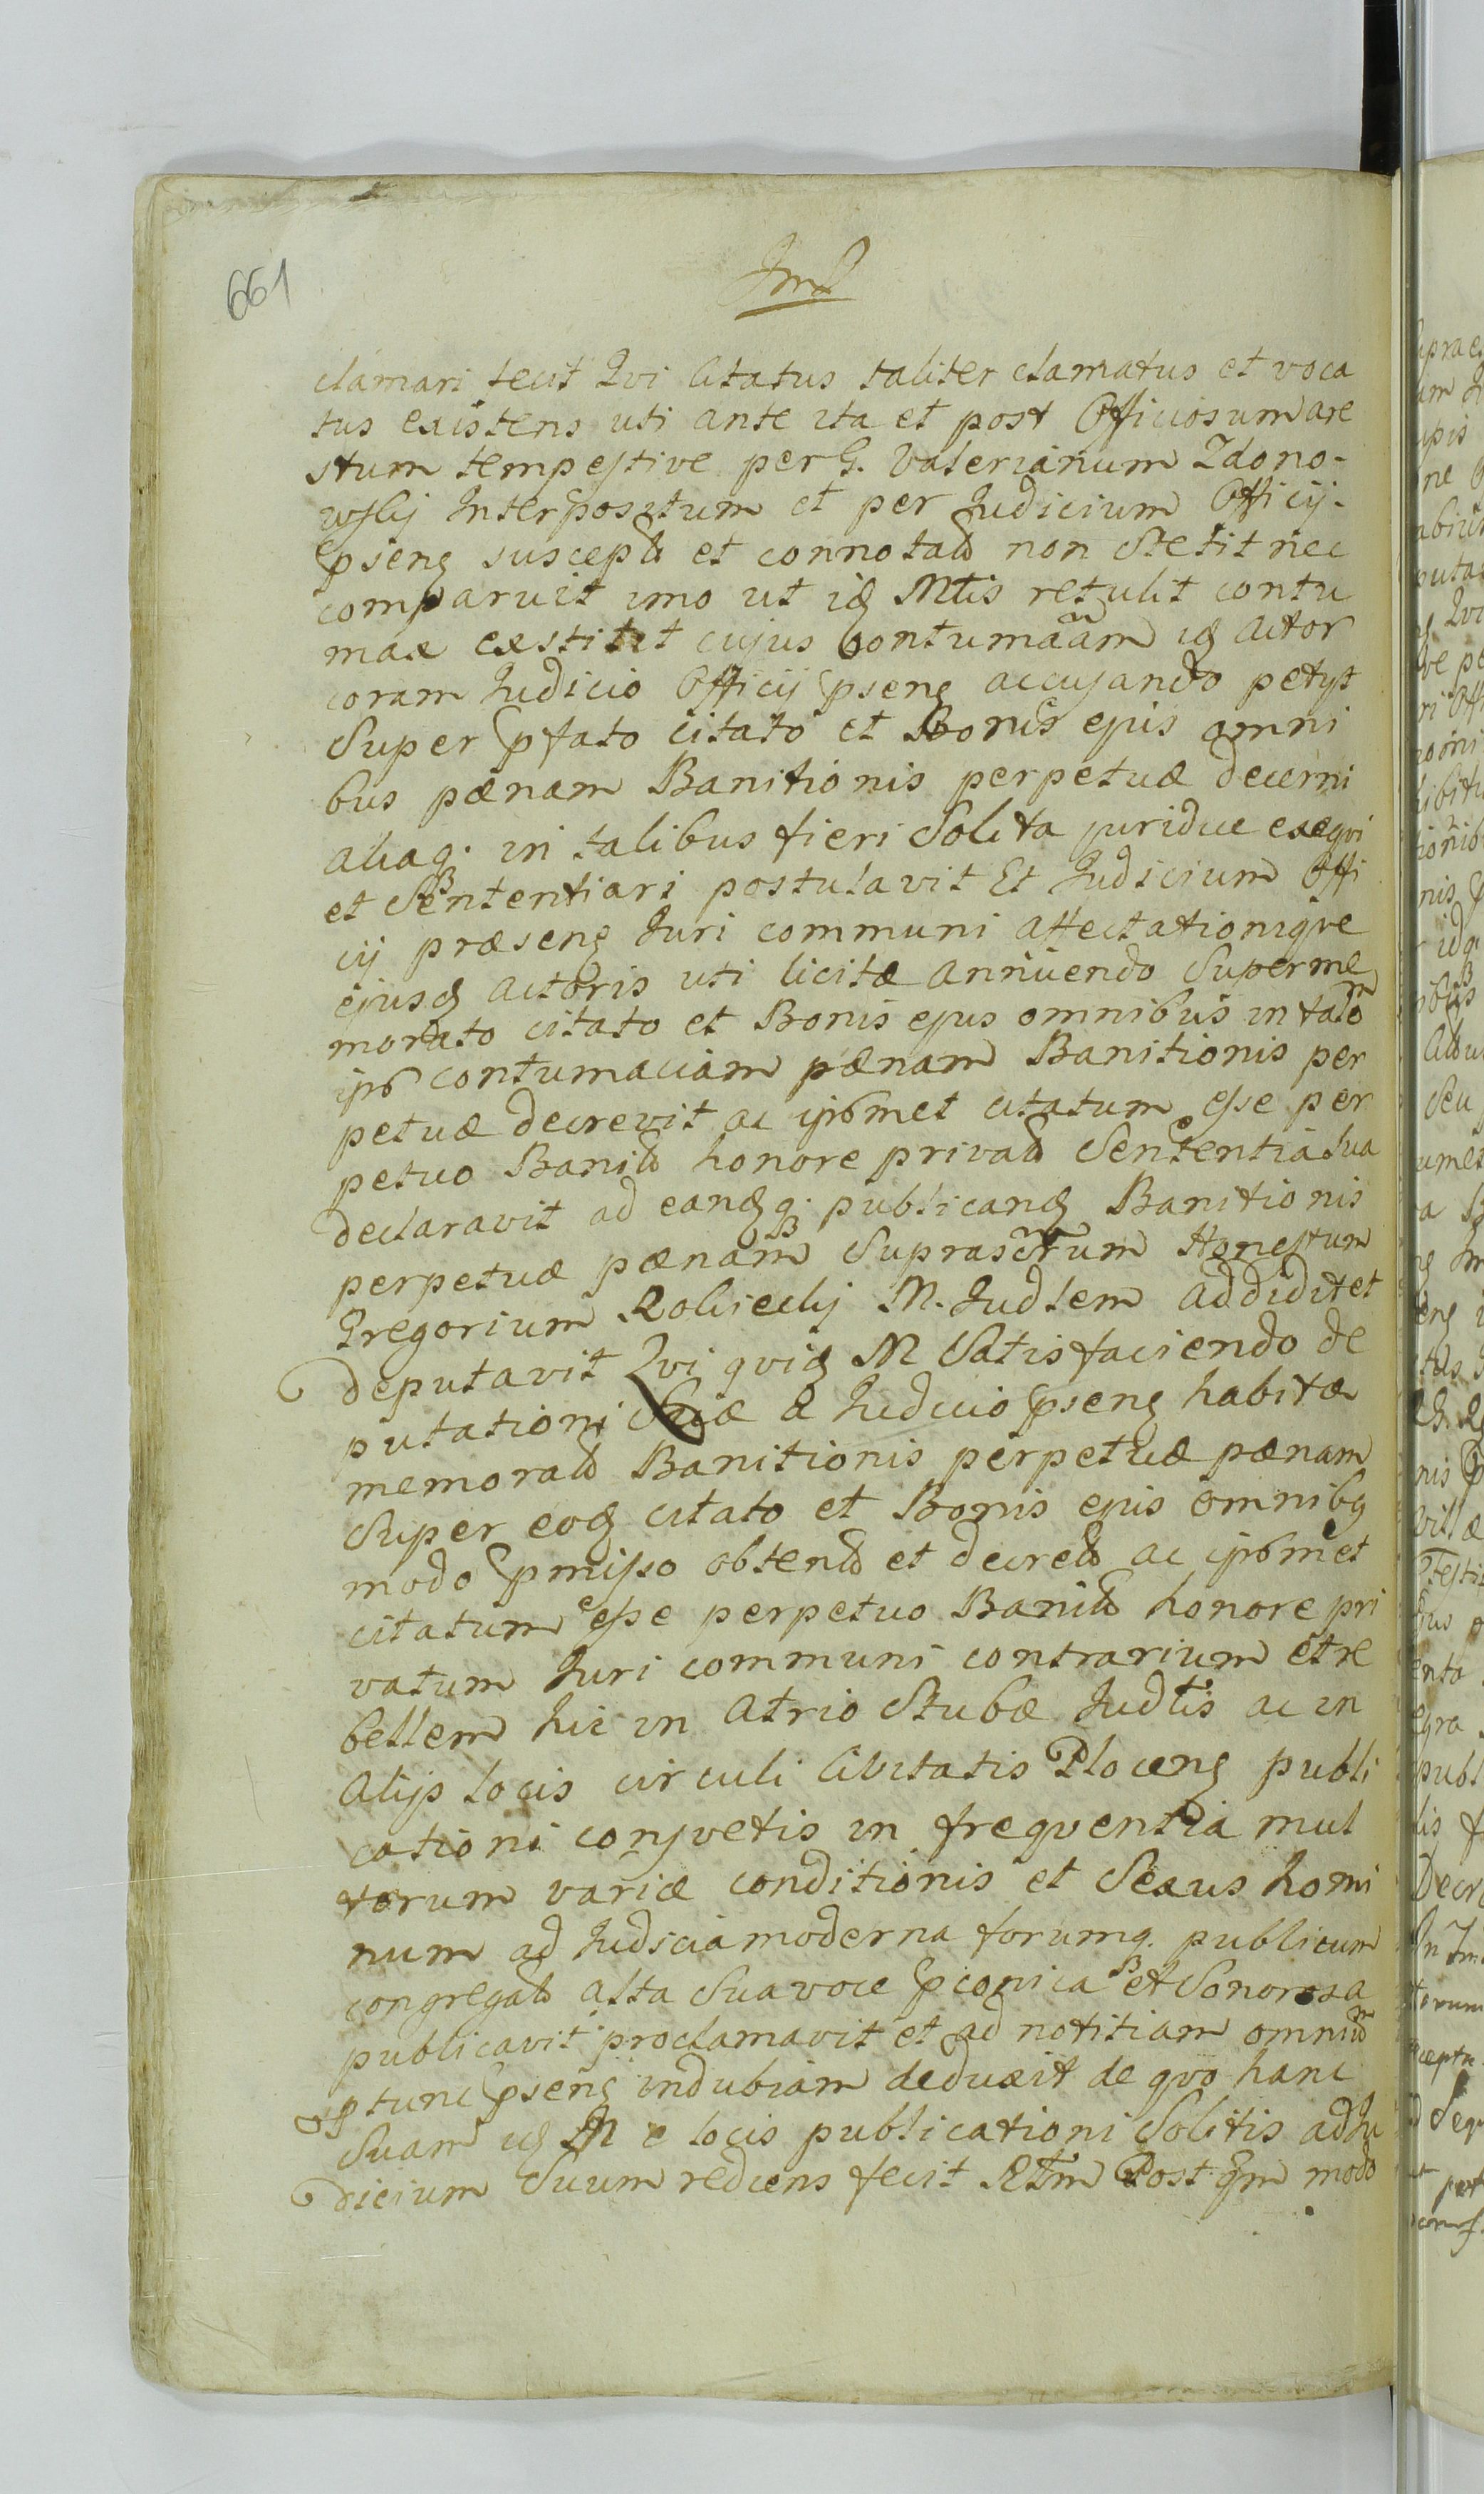 661
clamari fecit Qvi Citatus taliter clamatus et voca
tus existens uti ante ita et post Officiosum are
stum tempestive per G. Valerianum Zdono-
wskij Interpositum et per Judicium Officij
pñseng suscept et connotat non Stetit nec
comparuit imo ut idq Mtis retulit contu
max exstitit cujus contumaciam idq Actor
coram Judicio Officij pñseng accusando petyt
Super pfato citato et Bonis ejus omni
bus pænam Banitionis perpetuæ decerni
aliaq. in talibus fieri Solita juridice exeqvi
et Sententiari postulavit Et Judicium Offi
cij præseng Juri communi affectationiqve
ejusd Actoris uti licitæ annuendo Super me
morato citato et Bonis ejus omnibus in talem
ipso contumaciam pænam Banitionis per
petuæ decrevit ac ipsomet citatum esse per
petuo Banit honore privat Sententia Sua
declaravit ad eandq. publicand Banitionis
perpetuæ pænam Suprascrum Honestum
Gregorium Roliiechij M. Judlem addidit et
deputavit Qvi qvid M Satisfaciendo de
putationi Suæ a Judicio pñseng habitæ
memorat Banitionis perpetuæ pænam
Super eod citato et Bonis ejus omnibq
modo pmisso obtent et decret ac ipsomet
citatum esse perpetuo Banit honore pri
vatum Juri communi contrarium et re
bellem hic in Atrio Stubæ Judlis ac in
Alijs locis circuli Civitatis Ploceng publi
cationi consvetis in freqventia mul
torum variæ conditionis et Sexus homi
num ad Judicia moderna forumq. publicum
congregat alta Sua voce pconica et Sonorosa
publicavit proclamavit et ad notitiam omnium
ptunc pñseng indubiam deduxit de qvo hanc
Suam idq M e locis publicationi Solitis ad Ju
dicium Suum rediens fecit Rtm Post qm modo